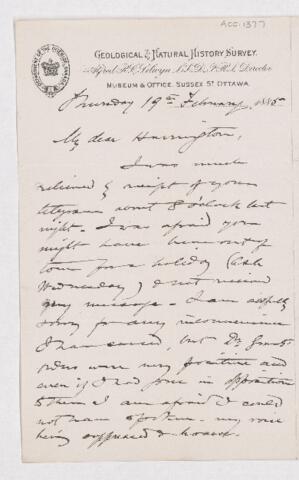 ACC-1377
GEOLOGICAL & NATURAL HISTORY SURVEY.
Alfred R.C. Selwyn L.L.D., F.R.S., Director
MUSEUM & OFFICE, SUSSEX ST. OTTAWA.
Thursday 19th February, 1885
My dear Harrington,
I was much
relieved by receipt of your
telegram about 8 o'clock last
night. I was afraid you
might have been out of
town for a holiday (Ash
Wednesday) & not received
my message. I am awfully
sorry for any inconvenience
I have caused, but Dr Grant's
orders were very positive and
even if I had gone in opposition
to them I am afraid I could
not have spoken - my voice
being suppressed & hoarse.